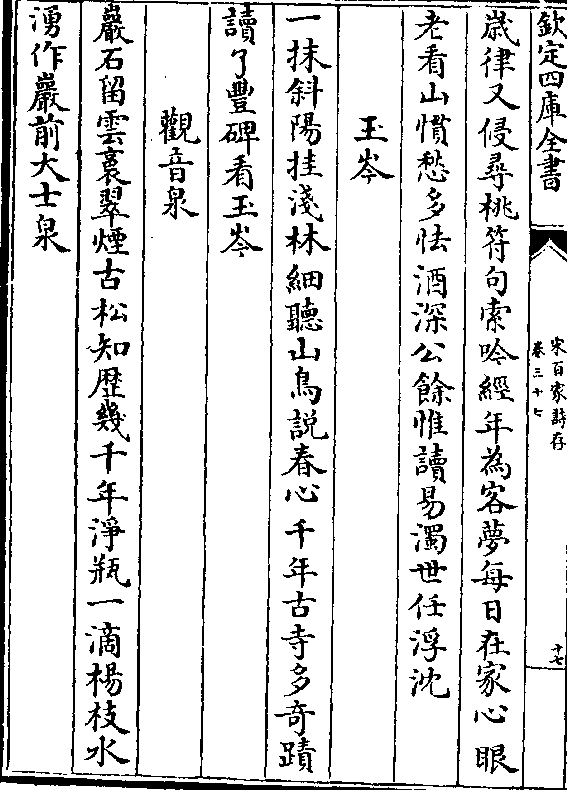 欽定四庫全書
宋百家詩存
卷三十七
十七
歲律又侵尋桃符句索吟經年為客夢每日在家心眼
老看山慣愁多怯酒深公餘惟讀易濁世任浮沈
玉岑
一抹斜陽挂淺林細聽山鳥説春心千年古寺多奇蹟
讀了豐碑看玉岑
觀音泉
巖石留雲裹翠煙古松知歴幾千年淨瓶一滴楊枝水
湧作巖前大士泉